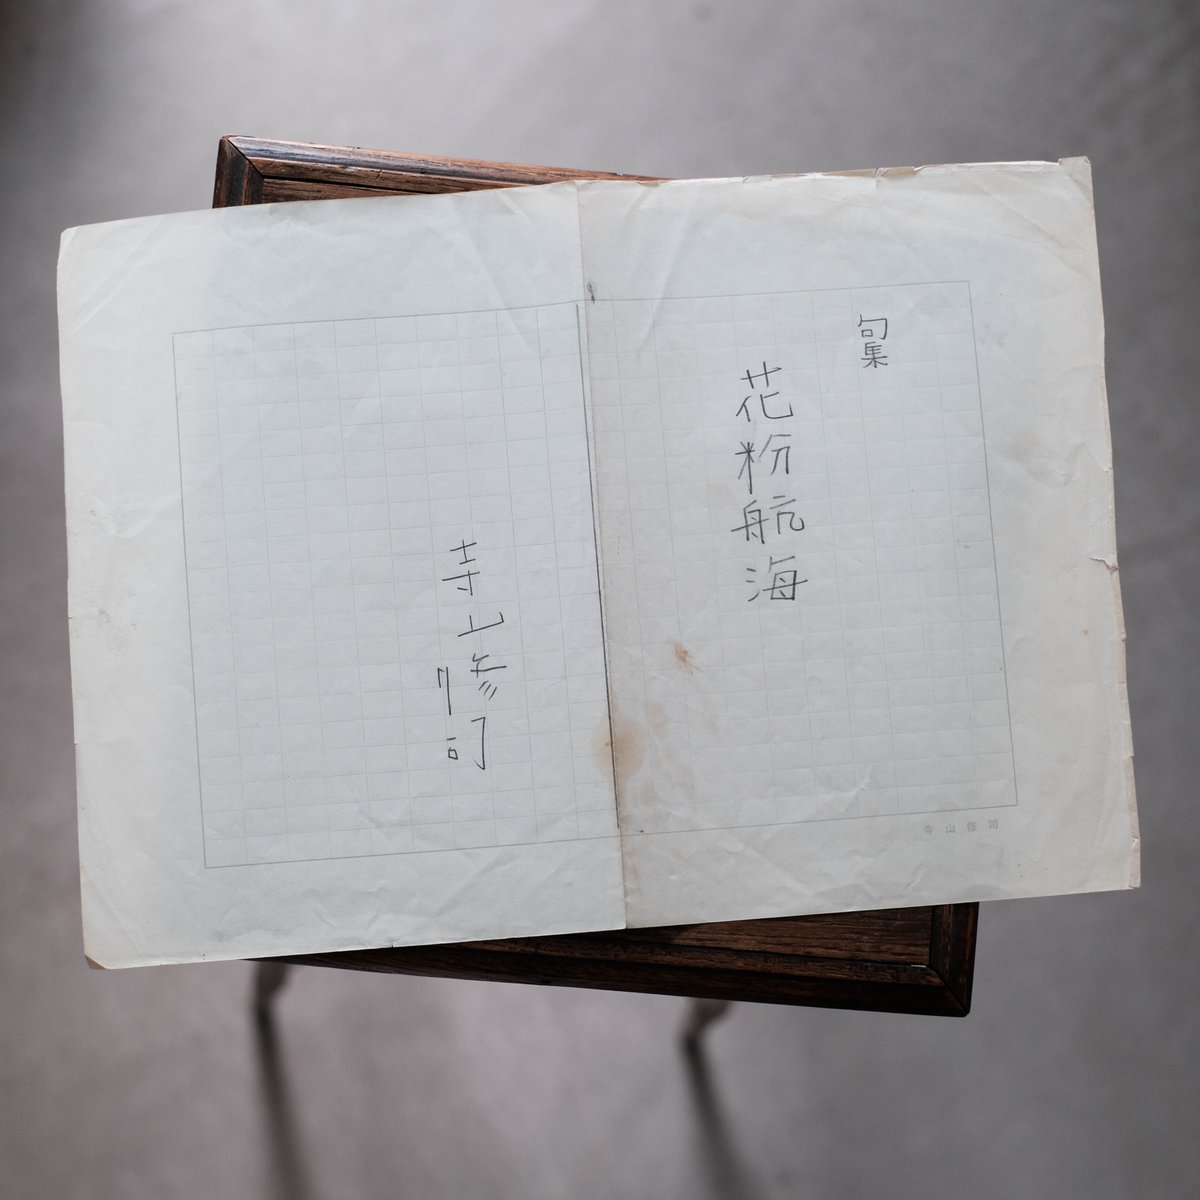 句集
花粉航海
寺山修司
寺山修司